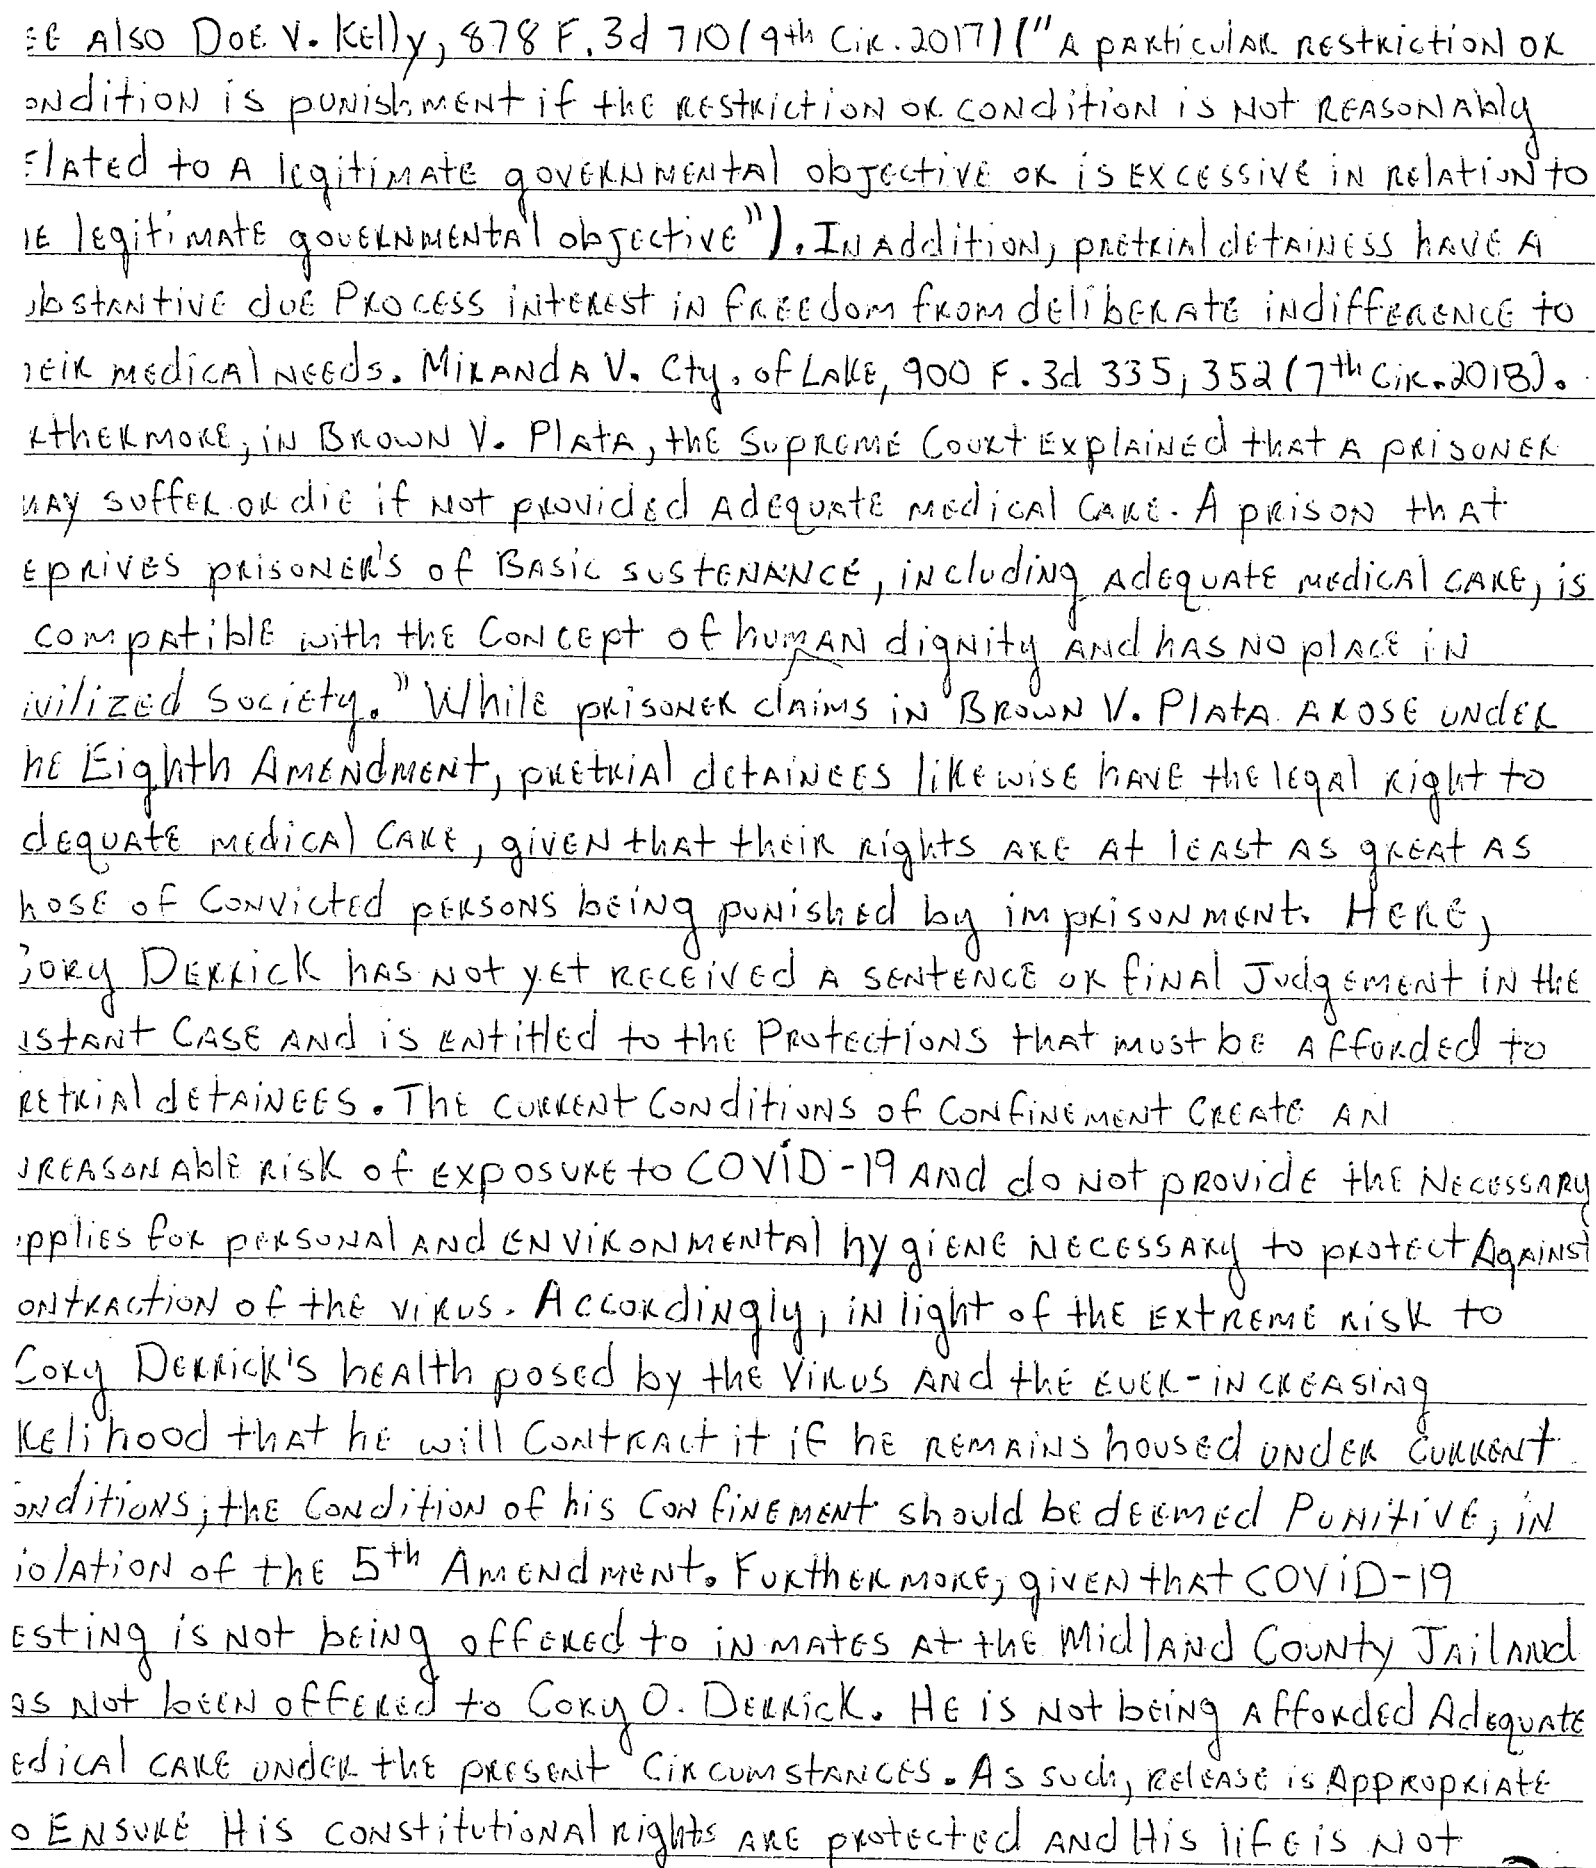 EE Also Doe v. Kelly, 878 F.3d 710 (9th Cir. 2017) ("A particular restriction or
ondition is punishment if the restriction or condition is not reasonably
elated to a legitimate governmental objective or is excessive in relation to
he legitimate governmental objective"). In addition, pretrial detainess have a
ubstantive due Process interest in freedom from deliberate indifference to
heir medical needs. Miranda v. Cty. of Lake, 900 F.3d 335, 352 (7th Cir. 2018).
rthermore, in Brown v. Plata, the Supreme Court explained that a prisoner
may suffer or die if not provided adequate medical care. A prison that
eprives prisoner's of Basic sustenance, including adequate medical care, is
compatible with the concept of human dignity and has no place in
ivilized society." While prisoner claims in Brown v. Plata arose under
he Eighth Amendment, pretrial detainees likewise have the legal right to
dequate medical care, given that their rights are at least as great as
hose of convicted persons being punished by imprisonment. Here,
Cory Derrick has not yet received a sentence or final Judgement in the
nstant case and is entitled to the Protections that must be afforded to
retrial detainees. The current conditions of confinement create an
nreasonable risk of exposure to COVID-19 and do not provide the necessary
upplies for personal and environmental hygiene necessary to protect Against
ontraction of the virus. Accordingly, in light of the extreme risk to
Cory Derrick's health posed by the virus and the ever-increasing
kelihood that he will contract it if he remains housed under current
onditions; the condition of his confinement should be deemed Punitive, in
iolation of the 5th Amendment. Furthermore, given that COVID-19
esting is not being offered to inmates at the Midland County Jail and
as not been offered to Cory O. Derrick. He is not being afforded Adequate
edical care under the present circumstances. As such, release is Appropriate
o Ensure His constitutional rights are protected and His life is not